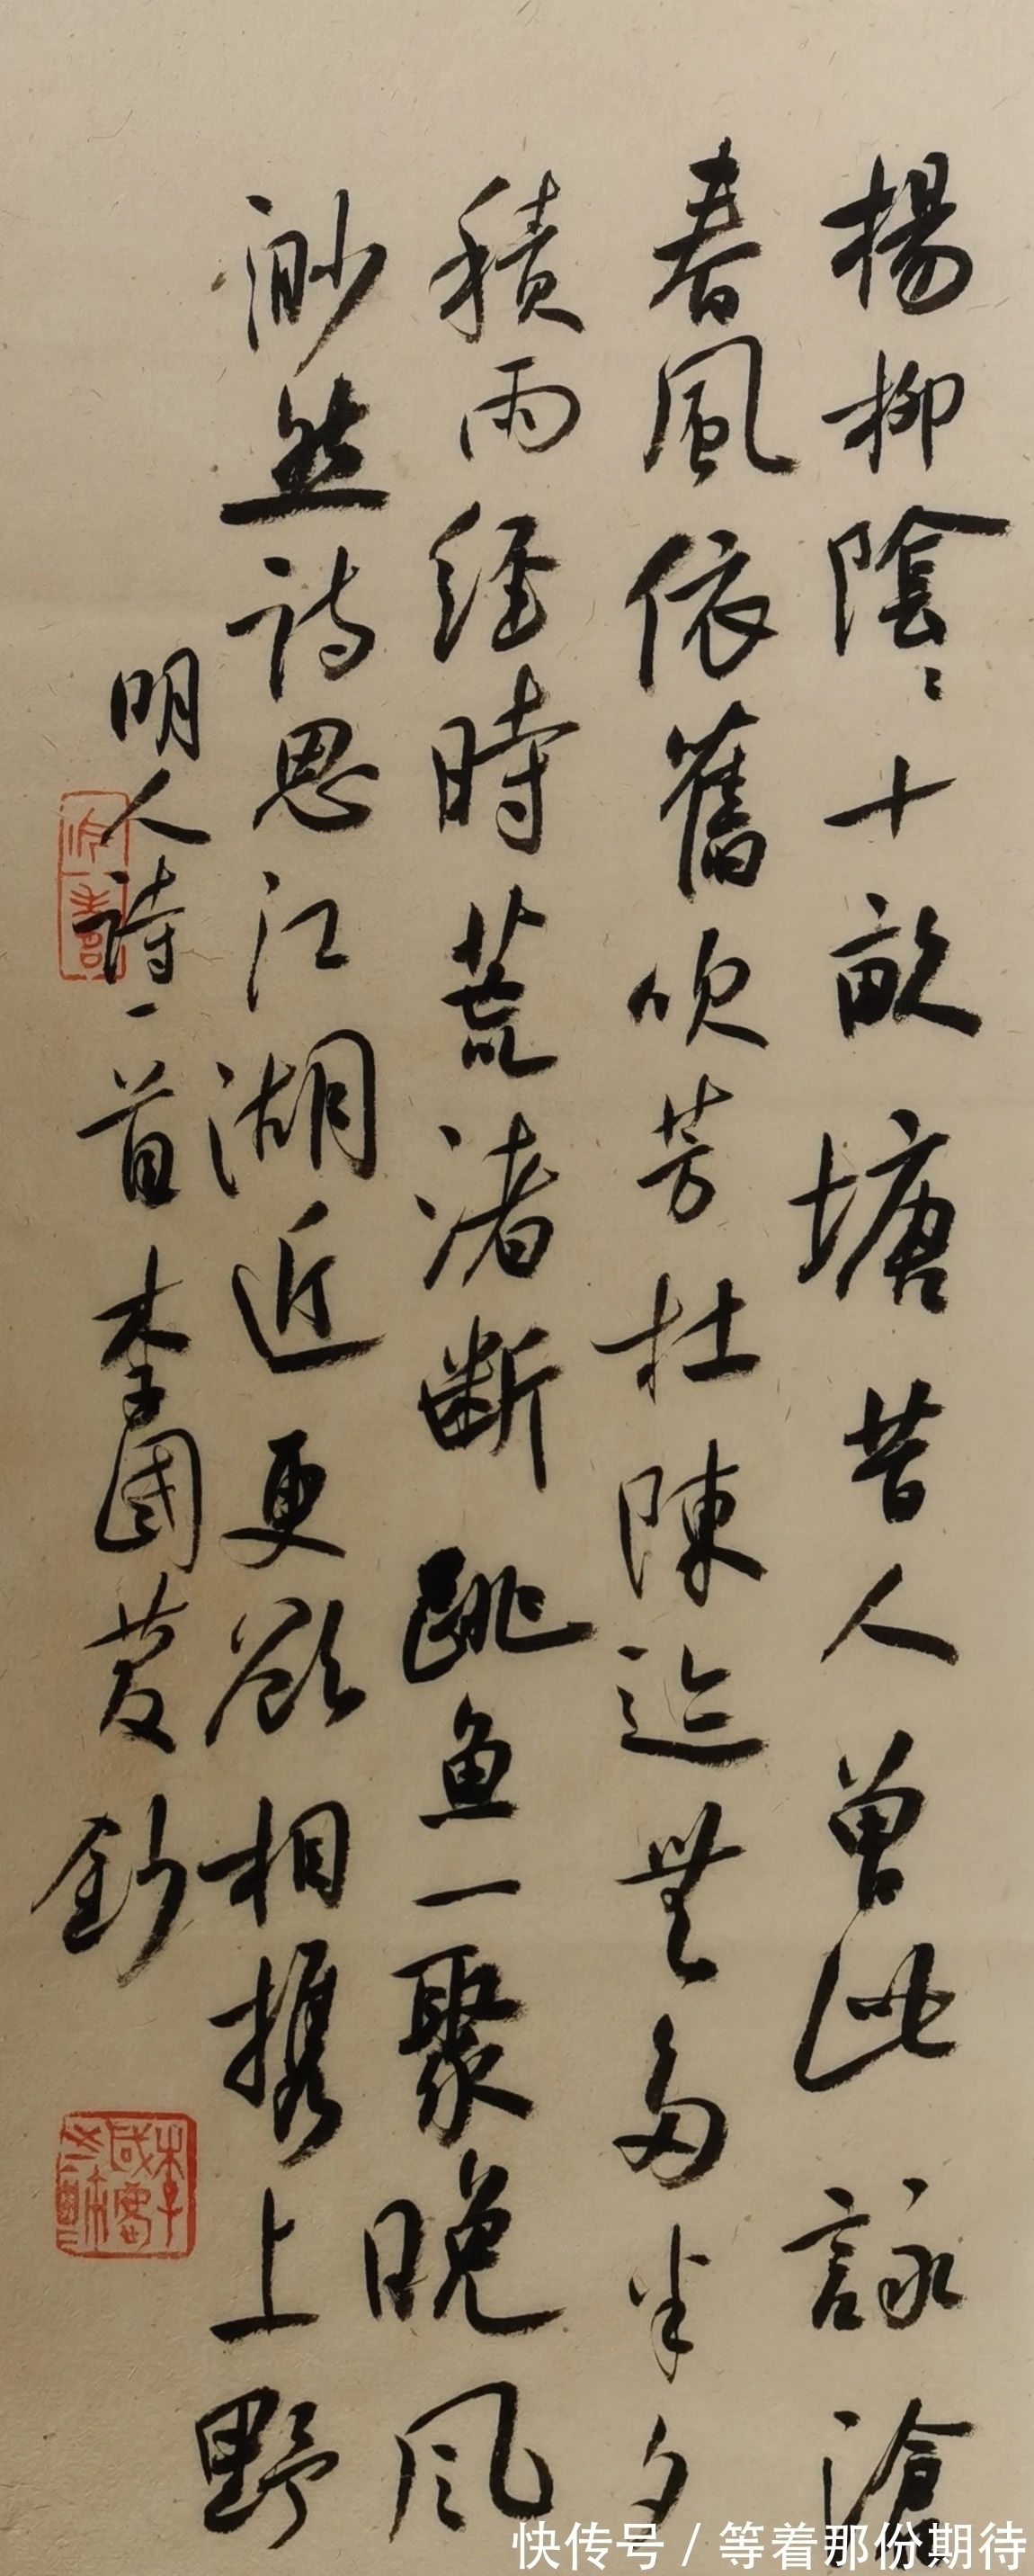 楊柳陰〻十畝塘昔人曾此詠滄
春風依舊吹芳杜陳迹無多半夕
積雨經時荒渚斷跳魚一聚晚風
渺然詩思江湖近更欲相攜上野
明人詩一首李國 鈔
快传号/等着那份期待